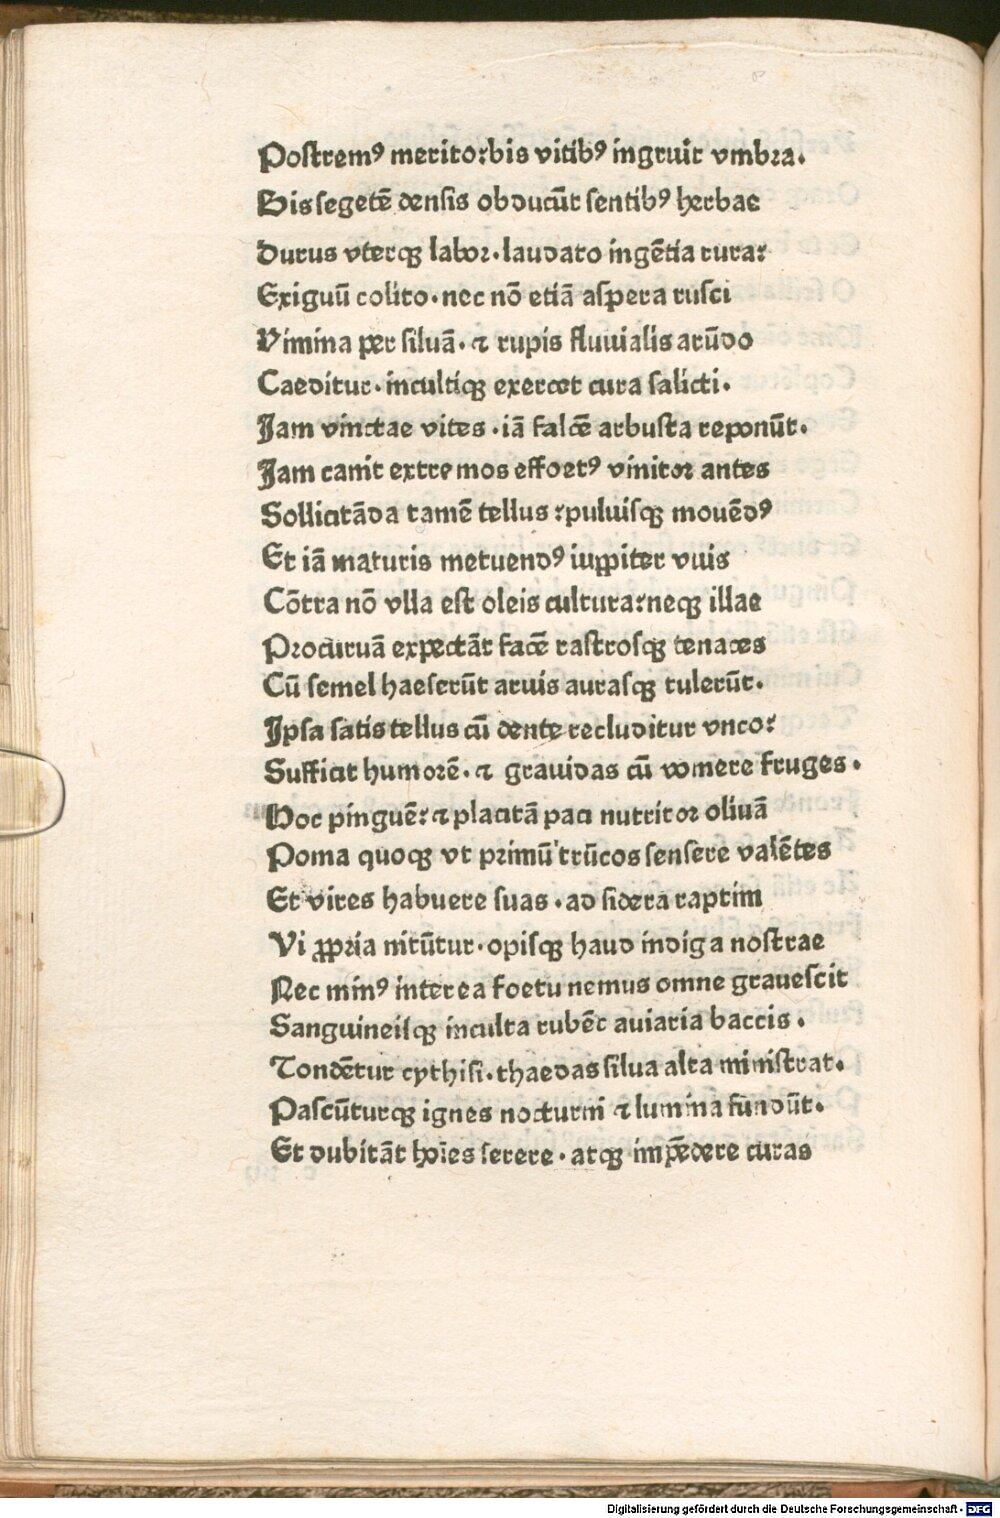 Postremꝰ merito:bis vitibꝰ ingruit vmbꝛa.
Bis segetē densis obducūt sentibꝰ herbae
Durus vterqꝫ laboꝛ. laudato ingētia rura:
Exiguū colito. nec nō etiā aspera rusci
Vimina per siluā. ⁊ rupis fluuialis arūdo
Caeditur. incultiqꝫ exercet cura salicti.
Jam vinctae vites. iā falcē arbusta reponūt.
Jam canit extremos effoetꝰ vinitoꝛ antes
Sollicitāda tamē tellus: puluisqꝫ mouēdꝰ
Et iā maturis metuendꝰ iuꝑpiter vuis
Cōtra nō vlla est oleis cultura: neqꝫ illae
Pꝛocuruā expectāt facē rastrosqꝫ tenaces
Cū semel haeserūt aruis aurasqꝫ tulerūt.
Ipsa satis tellus cū dente recluditur vnco:
Sufficit humoꝛē. ⁊ grauidas cū vomere fruges.
Hoc pinguē: ⁊ placitā paci nutritoꝛ oliuā
Poma quoqꝫ vt pꝛimū trūcos sensere valētes
Et vires habuere suas. ad sidera raptim
Vi ꝓpria nitūtur. opisqꝫ haud indiga nostrae
Nec minꝰ interea foetu nemus omne grauescit
Sanguineisqꝫ inculta rubēt auiaria baccis.
Tondētur cythisi. thaedas silua alta ministrat.
Pascūturqꝫ ignes nocturni ⁊ lumina fundūt.
Et dubitāt hoīes serere. atqꝫ impēdere curas
Digitalisierung gefördert durch die Deutsche Forschungsgemeinschaft - DFG